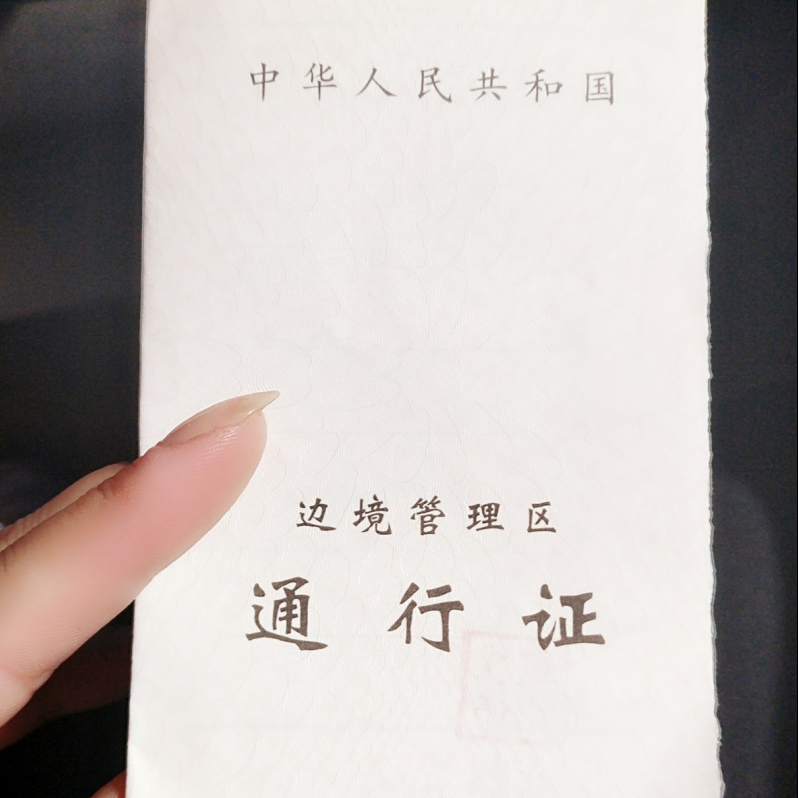 中华人民共和国
边境管理区
通行证